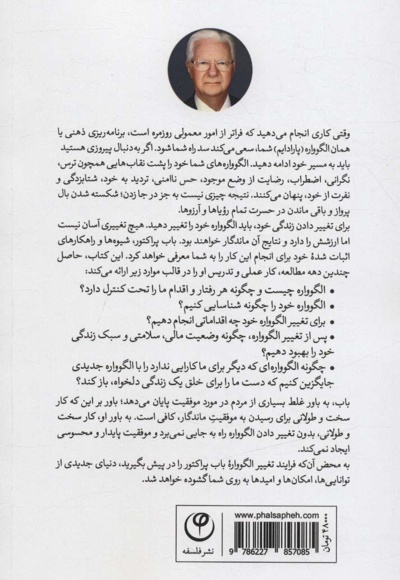 وقتی کاری انجام می‌دهید که فراتر از امور معمولی روزمره است، برنامه‌ریزی ذهنی یا
همان الگوواره (پارادایم) شما، سعی می‌کند سد راه شما شود. اگر به دنبال پیروزی هستید
باید به مسیر خود ادامه دهید. الگوواره‌های شما خود را پشت نقاب‌هایی همچون ترس،
نگرانی، اضطراب، رضایت از وضع موجود، حس ناامنی، تردید به خود، شتابزدگی و
نفرت از خود، پنهان می‌کنند. نتیجه چیزی نیست به جز در جا زدن؛ شکسته شدن بال
پرواز و باقی ماندن در حسرت تمام رؤیاها و آرزوها.
برای تغییر دادن زندگی خود، باید الگوواره خود را تغییر دهید. هیچ تغییری آسان نیست
اما ارزشش را دارد و نتایج آن ماندگار خواهند بود. باب پراکتور، شیوه‌ها و راهکارهای
اثبات شدهٔ خود برای انجام این کار را به شما معرفی خواهد کرد. این کتاب، حاصل
چندین دهه مطالعه، کار عملی و تدریس او را در قالب موارد زیر ارائه می‌کند:
• الگوواره چیست و چگونه هر رفتار و اقدام ما را تحت کنترل دارد؟
• الگوواره خود را چگونه شناسایی کنیم؟
• برای تغییر الگوواره خود چه اقداماتی انجام دهیم؟
• پس از تغییر الگوواره، چگونه وضعیت مالی، سلامتی و سبک زندگی
خود را بهبود دهیم؟
• چگونه الگوواره‌ای که دیگر برای ما کارایی ندارد را با الگوواره جدیدی
جایگزین کنیم که دست ما را برای خلق یک زندگی دلخواه، باز کند؟
باب، به باور غلط بسیاری از مردم در مورد موفقیت پایان می‌دهد؛ باور بر این که کار
سخت و طولانی برای رسیدن به موفقیتِ ماندگار، کافی است. به باور او، کار سخت
و طولانی، بدون تغییر دادن الگوواره راه به جایی نمی‌برد و موفقیت پایدار و محسوسی
ایجاد نمی‌کند.
به محض آن‌که فرایند تغییر الگووارهٔ باب پراکتور را در پیش بگیرید، دنیای جدیدی از
توانایی‌ها، امکان‌ها و امیدها به روی شما گشوده خواهد شد.
www.phalsapheh.com
9 786227 857085
۴۸۰۰۰ تومان
نشر فلسفه